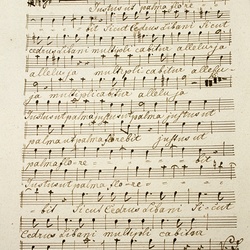 Justus ut palma flore
bit Sicut Cedrus Libani Sicut
Cedrus Libani multipli cabitur alleluja
alleluja multipli cabitur allelu
ja multiplicabitur allelu ja
Justus ut palma justus ut palma justus ut
palma justus ut palma florebit justus ut
palma flo re bit
Justus ut palma flo re
bit Sicut Cedrus Libani Sicut
Cedrus Libani multipli cabitur